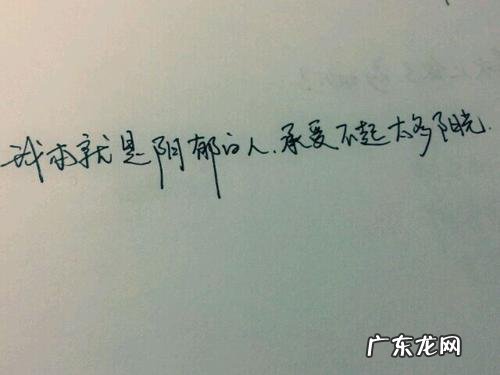 我本就是阴郁的人.承受不起太多阳光.
广东龙网